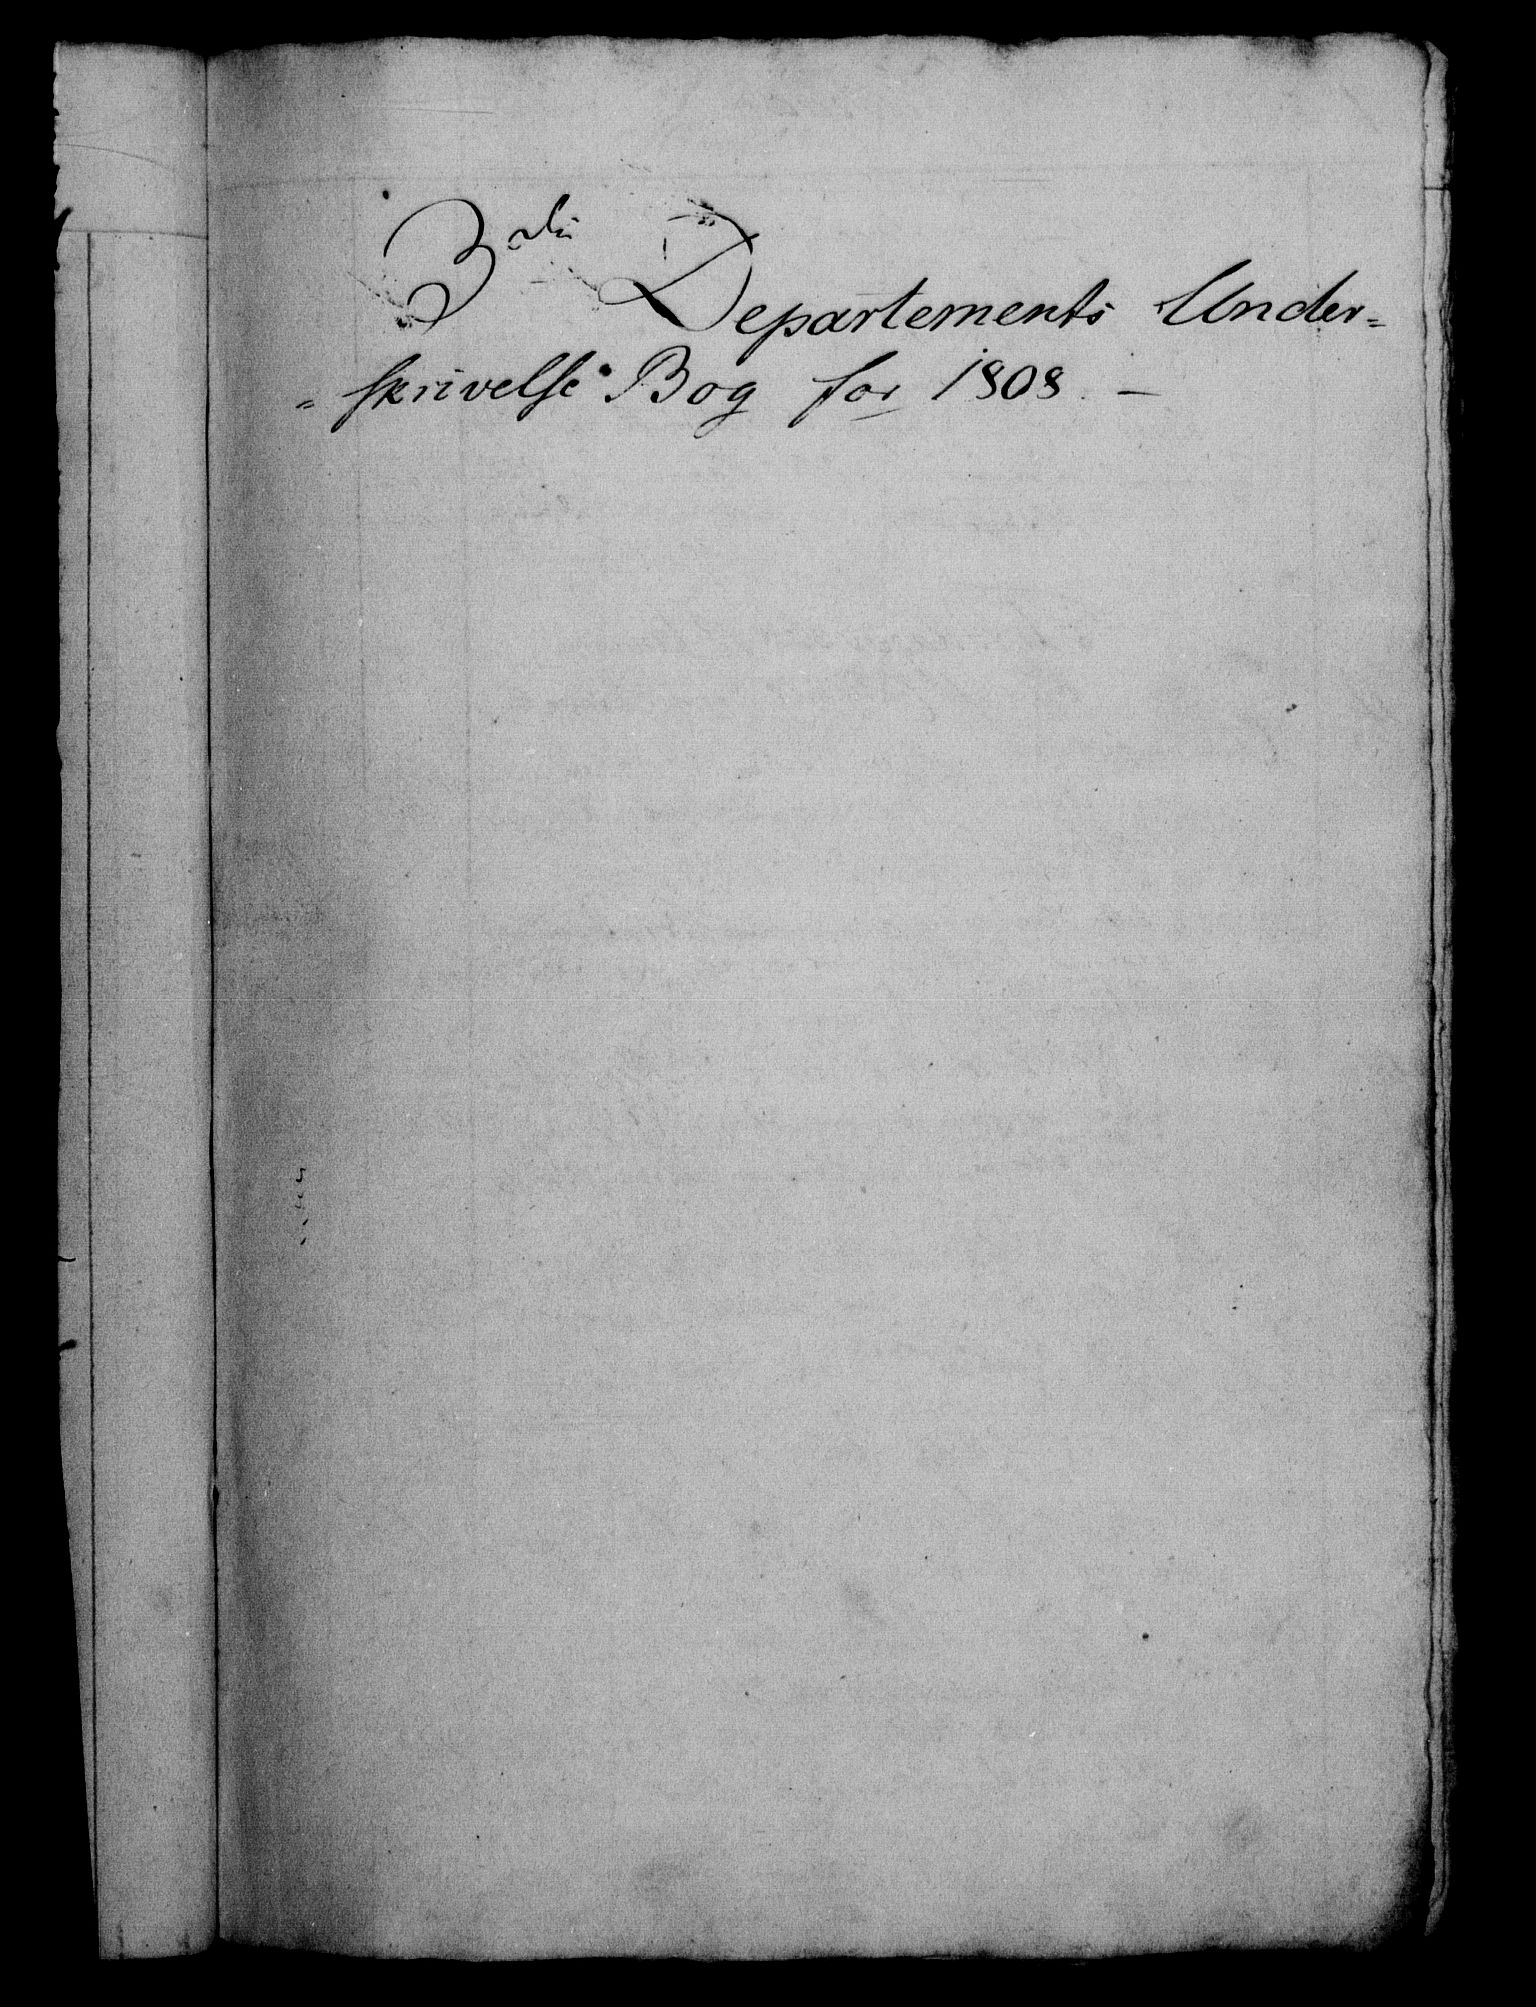 3die Departements Under=
=skrivelse Bog for 1808. —